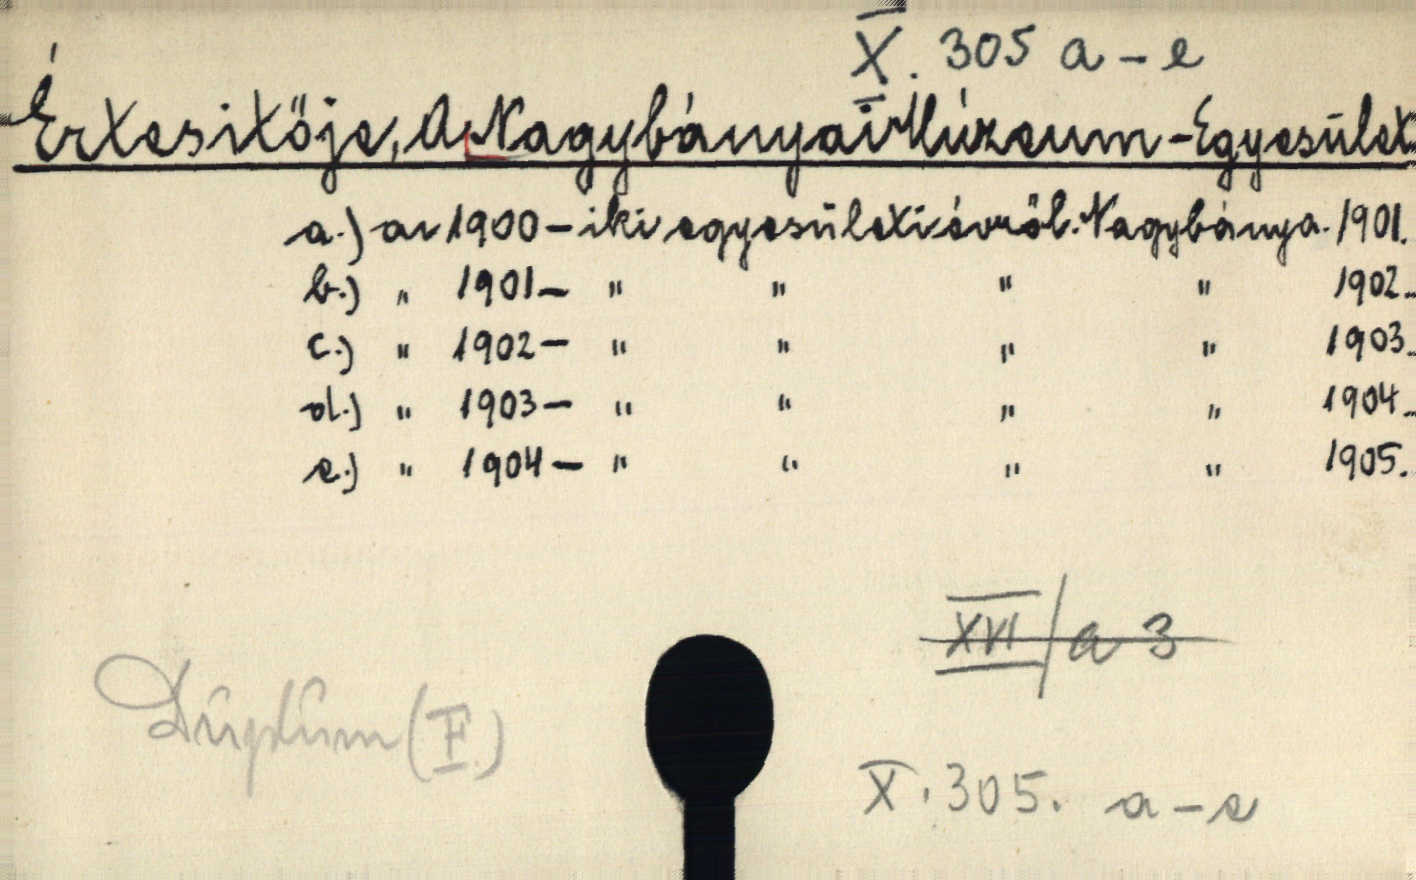 X. 305 a - e
Értesitője, A Nagybányai Múzeum-Egyesület
a.) az 1900-iki egyesületi évről. Nagybánya. 1901.
b.) " 1901- " " " " 1902.
c.) " 1902- " " " " 1903.
d.) " 1903- " " " " 1904.
e.) " 1904- " " " " 1905.
XVI/a 3
Duplum (F.)
X. 305. a-e